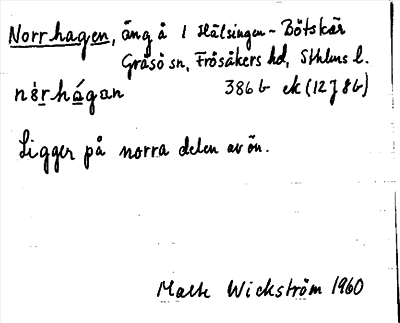 Norrhagen, äng å 1 Hälsingen-Båtskär
Gräsö sn, Frösåkers hd, Sthlms l.
nèrhágan 386b ek (12J8b)
Ligger på norra delen av ön.
Malte Wickström 1960